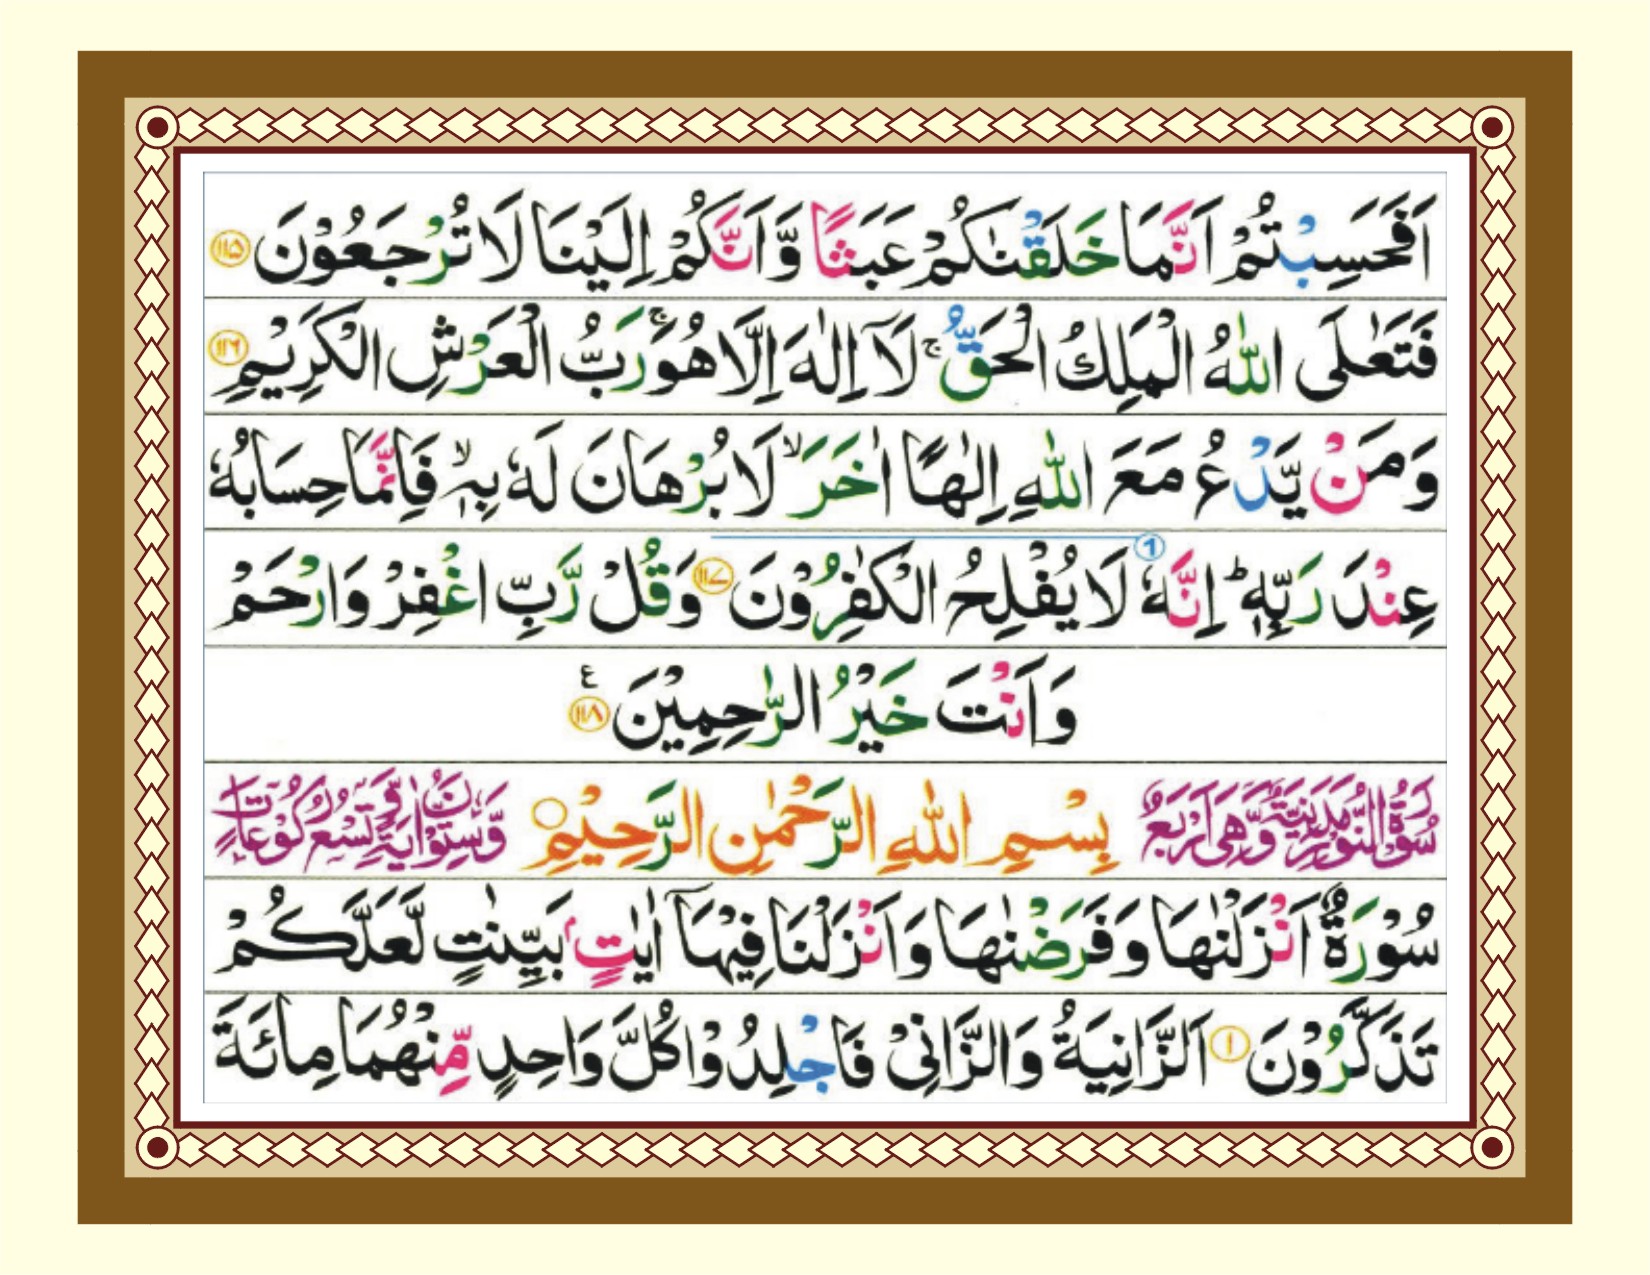 اَفَحَسِبْتُمْ اَنَّمَا خَلَقْنٰكُمْ عَبَثًا وَّاَنَّكُمْ اِلَيْنَا لَا تُرْجَعُوْنَ ۝١١٥
فَتَعٰلَى اللّٰهُ الْمَلِكُ الْحَقُّ ۚ لَاۤ اِلٰهَ اِلَّا هُوَ ۚ رَبُّ الْعَرْشِ الْكَرِيْمِ ۝١١٦
وَمَنْ يَّدْعُ مَعَ اللّٰهِ اِلٰهًا اٰخَرَ ۙ لَا بُرْهَانَ لَهٗ بِهٖ ۙ فَاِنَّمَا حِسَابُهٗ
عِنْدَ رَبِّهٖ ؕ اِنَّهٗ لَا يُفْلِحُ الْكٰفِرُوْنَ ۝١١٧ وَقُلْ رَّبِّ اغْفِرْ وَارْحَمْ
وَاَنْتَ خَيْرُ الرّٰحِمِيْنَ ۝١١٨ ع
سُوْرَةُ النُّوْرِ مَدَنِيَّةٌ وَّهِىَ اَرْبَعٌ بِسْمِ اللّٰهِ الرَّحْمٰنِ الرَّحِيْمِ وَّسِتُّوْنَ اٰيَةً وَّتِسْعُ رُكُوْعَاتٍ
سُوْرَةٌ اَنْزَلْنٰهَا وَفَرَضْنٰهَا وَاَنْزَلْنَا فِيْهَاۤ اٰيٰتٍۭ بَيِّنٰتٍ لَّعَلَّكُمْ
تَذَكَّرُوْنَ ۝١ اَلزَّانِيَةُ وَالزَّانِىْ فَاجْلِدُوْا كُلَّ وَاحِدٍ مِّنْهُمَا مِائَةَ